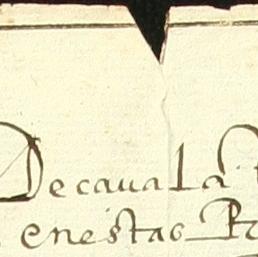 De cauala
enestas